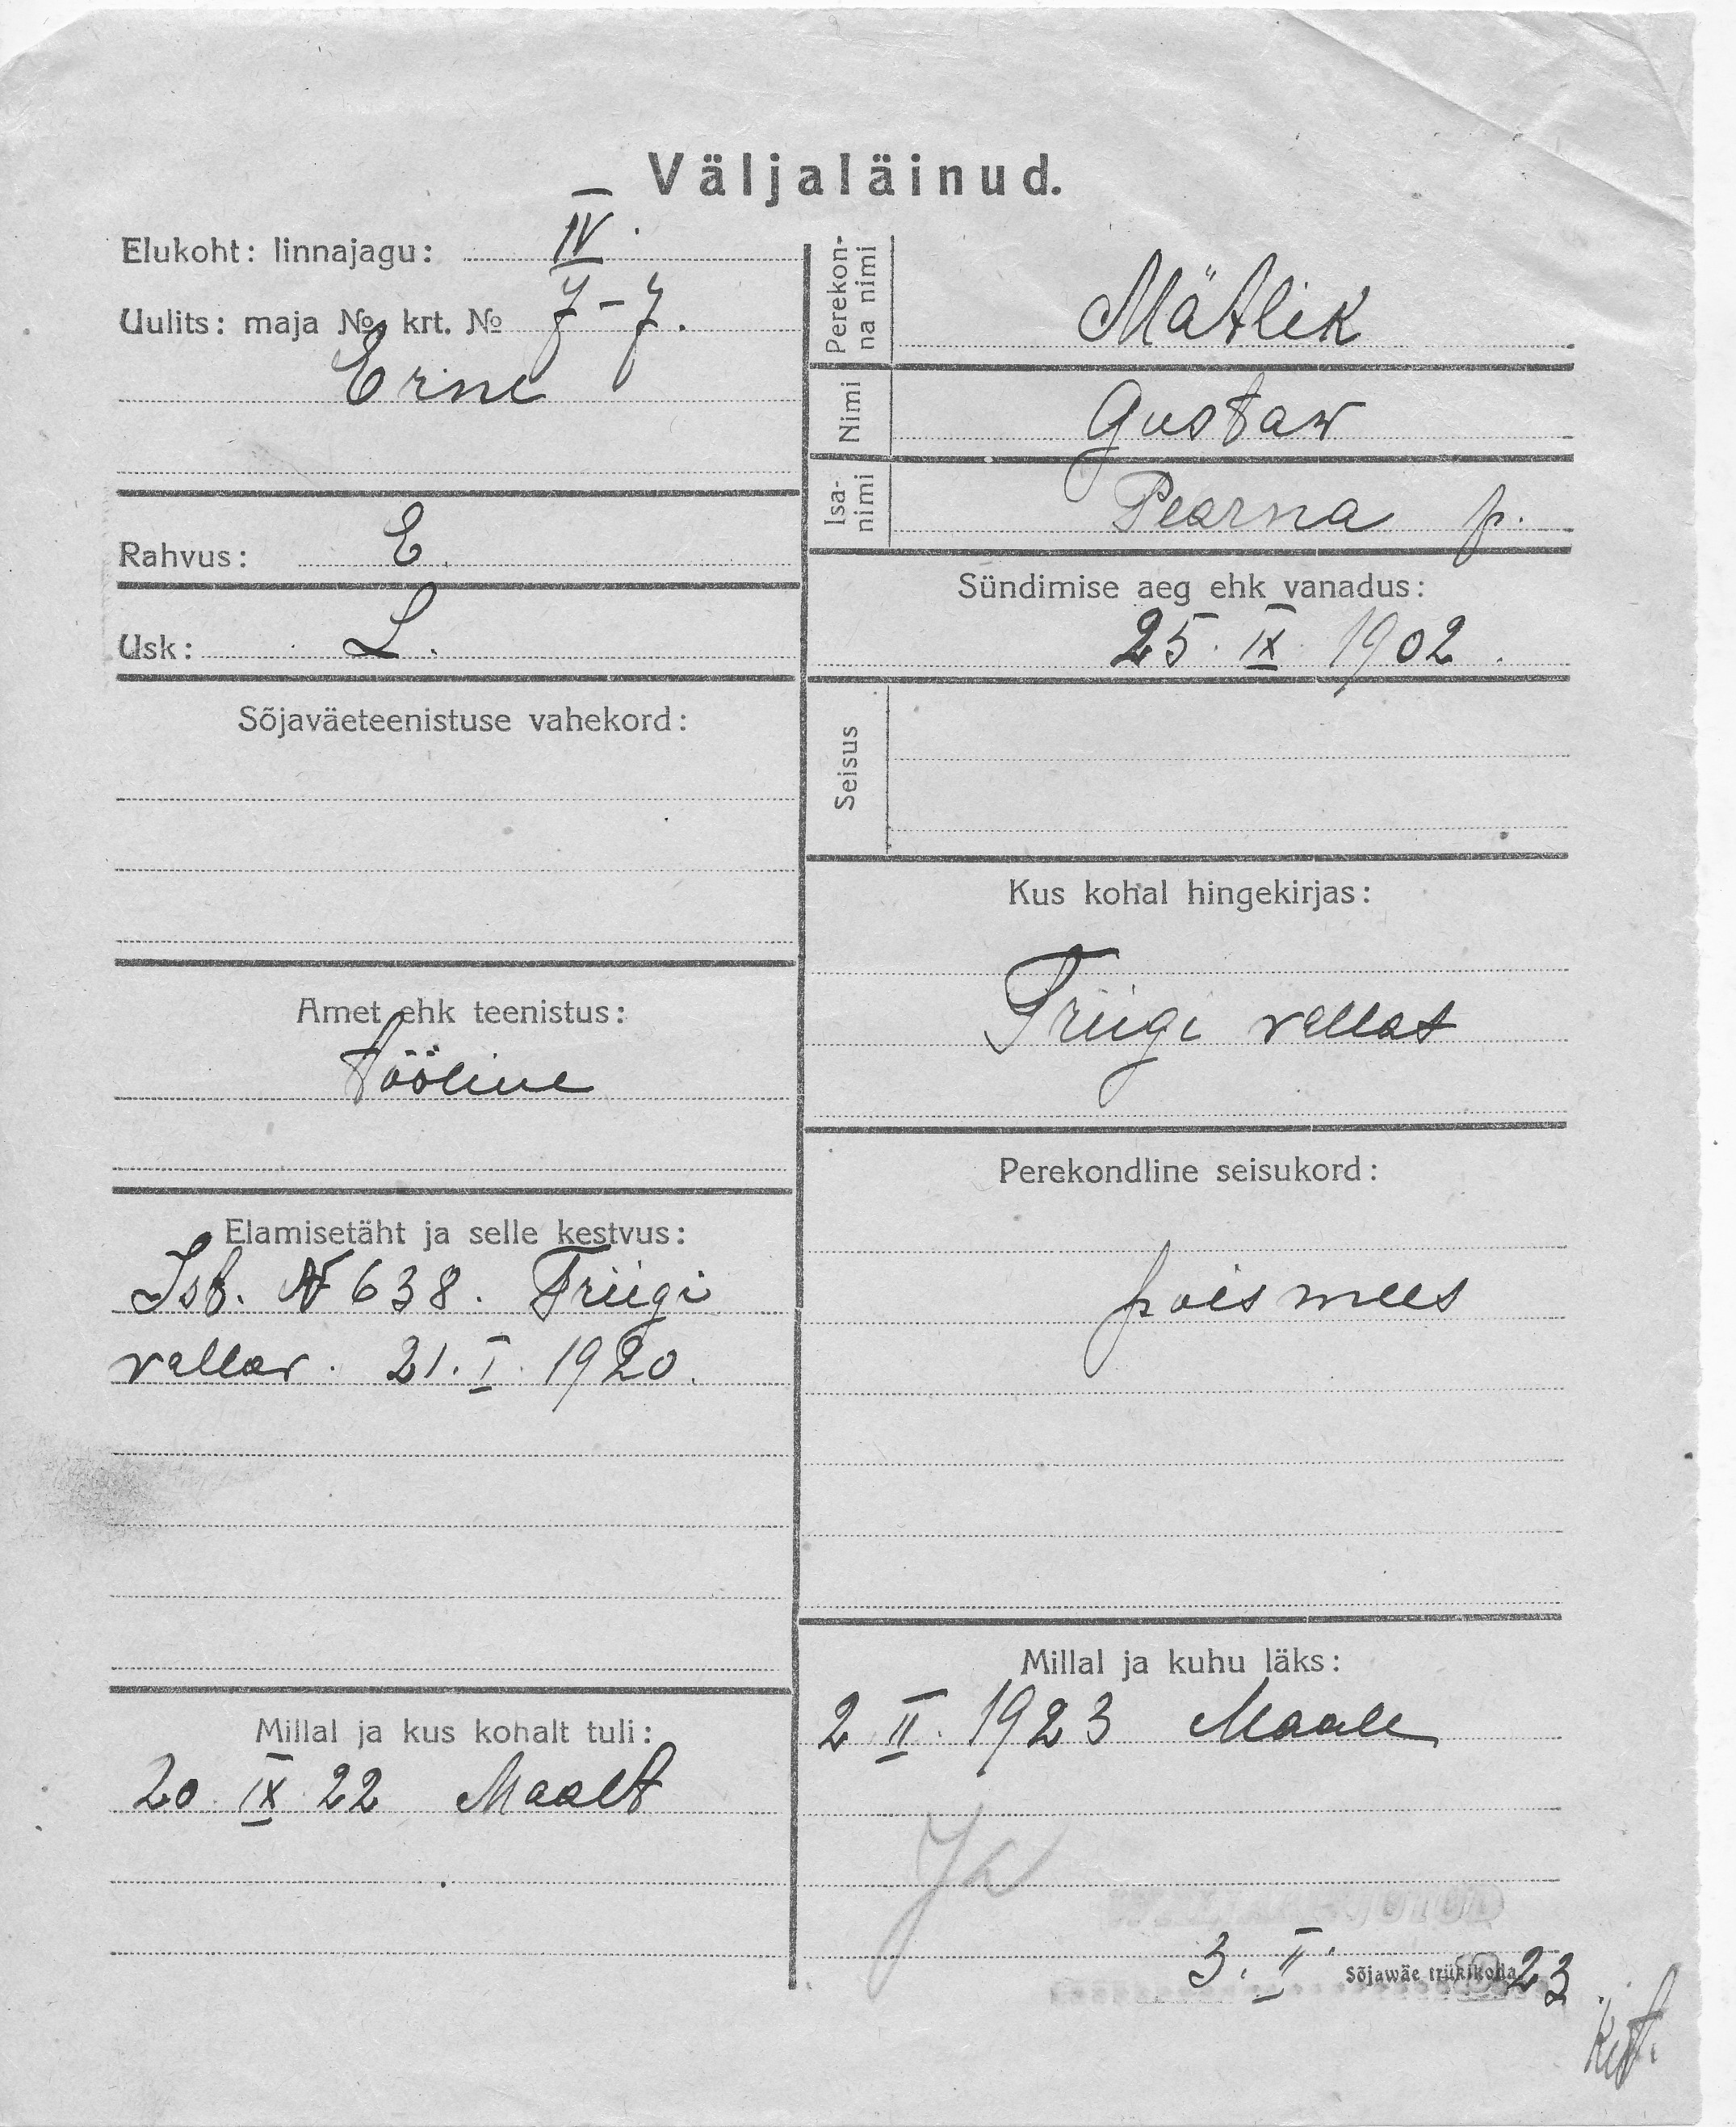 Väljaläinud.
Elukoht: linnajagu: IV.
Uulits: maja № krt. № 7-7.
Erne
Rahvus: E.
Usk: L.
Sõjaväeteenistuse vahekord:
Amet ehk teenistus:
tööline
Elamisetäht ja selle kestvus:
Ist. N 638. Triigi
vallav. 21. I. 1920.
Millal ja kus kohalt tuli:
20. IX 22 Maalt
Perekon-
na nimi
Mätlik
Nimi
Gustaw
Isa-
nimi
Pearna p.
Sündimise aeg ehk vanadus:
25. IX. 1902.
Seisus
Kus kohal hingekirjas:
Triigi vallas
Perekondline seisukord:
poismees
Millal ja kuhu läks:
2 II. 1923 Maale
3. II. 23
Sõjawäe trükikoda